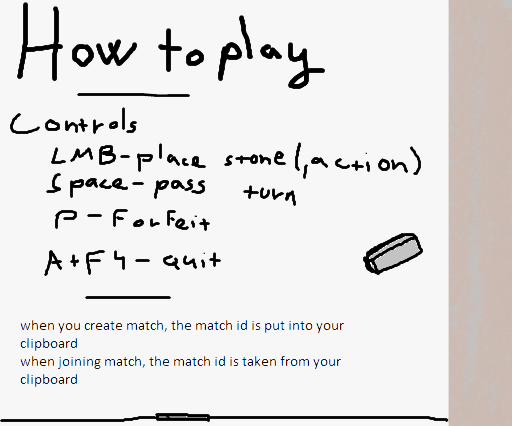 How to play
Controls
LMB-place stone(,action)
Space-pass turn
P-Forfeit
A+F4-quit
when you create match, the match id is put into your
clipboard
when joining match, the match id is taken from your
clipboard